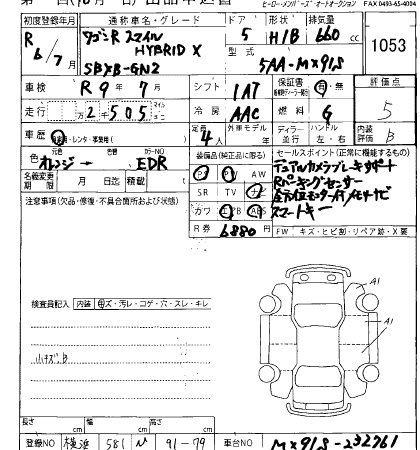 ヒーローメンバーズ・オートオークション FAX 0493-65-4004
初度登録年月 通称車名・グレード ドア 形状 排気量
R 6/7 ワゴンR スマイル 5 H/B 660 cc 1053
HYBRID X 型式
5BXB-GN2 5AA-MX91S
車検 R 9年 7月 シフト IAT 保証書 有・無 評価点
走行 2千505 冷房 AAC 燃料 G 5
車歴 自家用・レンタ・事業用 定員 4人 外車モデル ディーラー 並行 ハンドル 左・右 内装評価 B
色 元色 オレンジ → カラーNO EDR
装備品(純正品に限る) セールスポイント(正常に機能するもの)
名義変更期限 月 日迄 積載 PS PW AW デュアルカメラブレーキサポート
SR TV ナビ Rパーキングセンサー
注意事項(欠品・修復・不具合箇所および状態)
カワ エアB ABS 全方位モニター付メモリナビ
スマートキー
R券 6880円 FW キズ・ヒビ割・リペア跡・X要
検査員記入 内装 キズ・汚レ・コゲ・穴・スレ・キレ
A1
A1
小キズ B
長さ cm 幅 cm 高さ cm
登録NO 横浜 581 ル 91-79 車台NO MX91S-232761